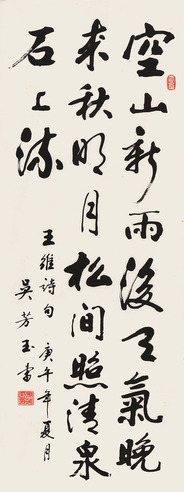 空山新雨後天氣晚
来秋明月松间照清泉
石上流
王維詩句 庚午年夏月
吳芳玉書